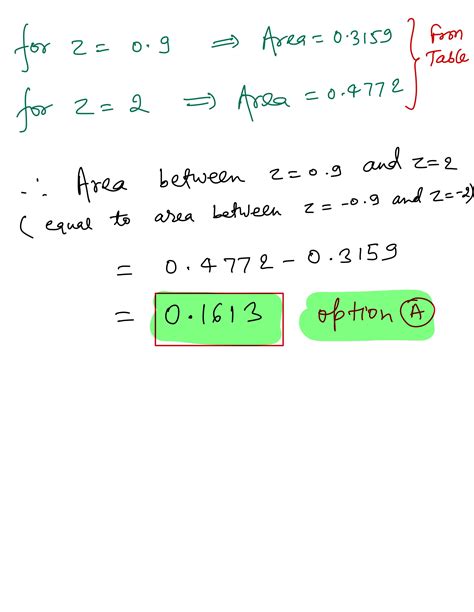 for z = 0.9 ⇒ Area = 0.3159
for z = 2 ⇒ Area = 0.4772
From
Table
∴ Area between z = 0.9 and z=2
( equal to area between z = -0.9 and z=-2)
= 0.4772 - 0.3159
= 0.1613 option A